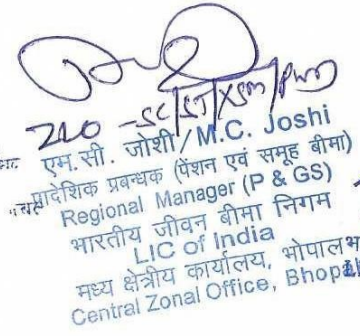 SC/ST/XSM/PWD
एम. सी. जोशी / M.C. Joshi
प्रादेशिक प्रबन्धक (पेंशन एवं समूह बीमा)
Regional Manager (P & GS)
भारतीय जीवन बीमा निगम
LIC of India
मध्य क्षेत्रीय कार्यालय, भोपाल
Central Zonal Office, Bhopal